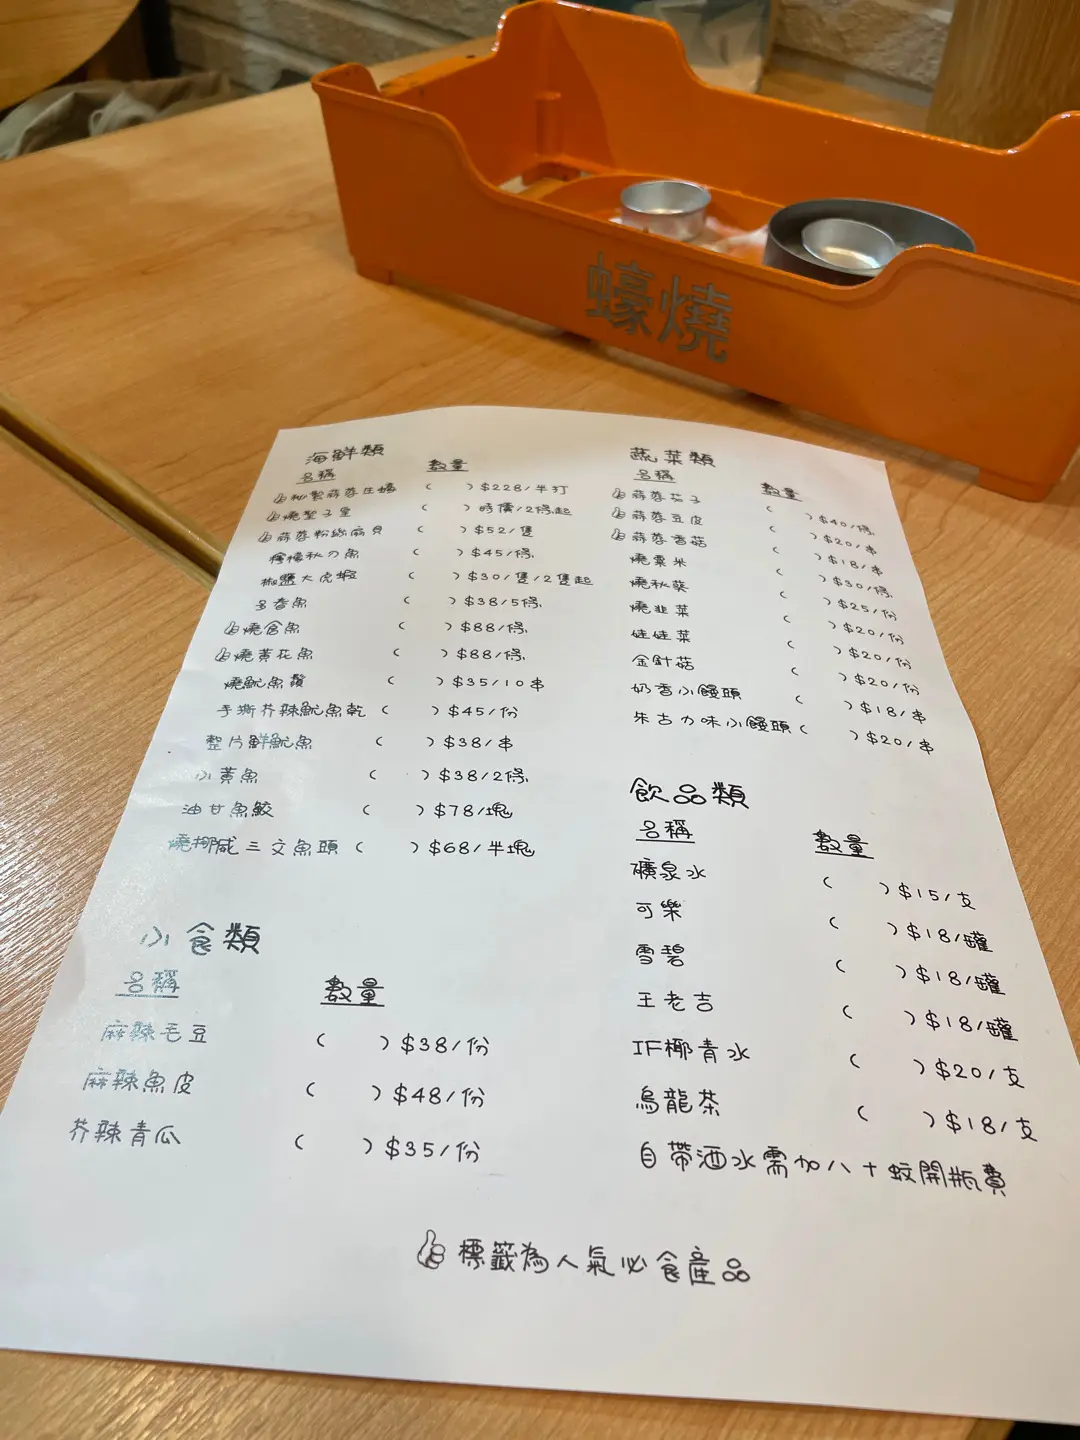 蠔燒
海鮮類
名稱 數量
秘製蒜蓉生蠔 ( ) $228/半打
燒聖子皇 ( ) 時價/2條起
蒜蓉粉絲扇貝 ( ) $52/隻
檸檬秋刀魚 ( ) $45/條
椒鹽大虎蝦 ( ) $30/隻/2隻起
多春魚 ( ) $38/5條
燒倉魚 ( ) $88/條
燒黃花魚 ( ) $88/條
燒魷魚鬚 ( ) $35/10串
手撕芥辣魷魚乾 ( ) $45/份
整片鮮魷魚 ( ) $38/串
小黃魚 ( ) $38/2條
油甘魚鮫 ( ) $78/塊
燒挪威三文魚頭 ( ) $68/半塊
小食類
名稱 數量
麻辣毛豆 ( ) $38/份
麻辣魚皮 ( ) $48/份
芥辣青瓜 ( ) $35/份
蔬菜類
名稱 數量
蒜蓉茄子 ( ) $40/條
蒜蓉豆皮 ( ) $20/串
蒜蓉香菇 ( ) $18/串
燒粟米 ( ) $30/條
燒秋葵 ( ) $25/份
燒韭菜 ( ) $20/份
娃娃菜 ( ) $20/份
金針菇 ( ) $20/份
奶香小饅頭 ( ) $18/串
朱古力味小饅頭 ( ) $20/串
飲品類
名稱 數量
礦泉水 ( ) $15/支
可樂 ( ) $18/罐
雪碧 ( ) $18/罐
王老吉 ( ) $18/罐
IF椰青水 ( ) $20/支
烏龍茶 ( ) $18/支
自帶酒水需加八十蚊開瓶費
標籤為人氣必食產品